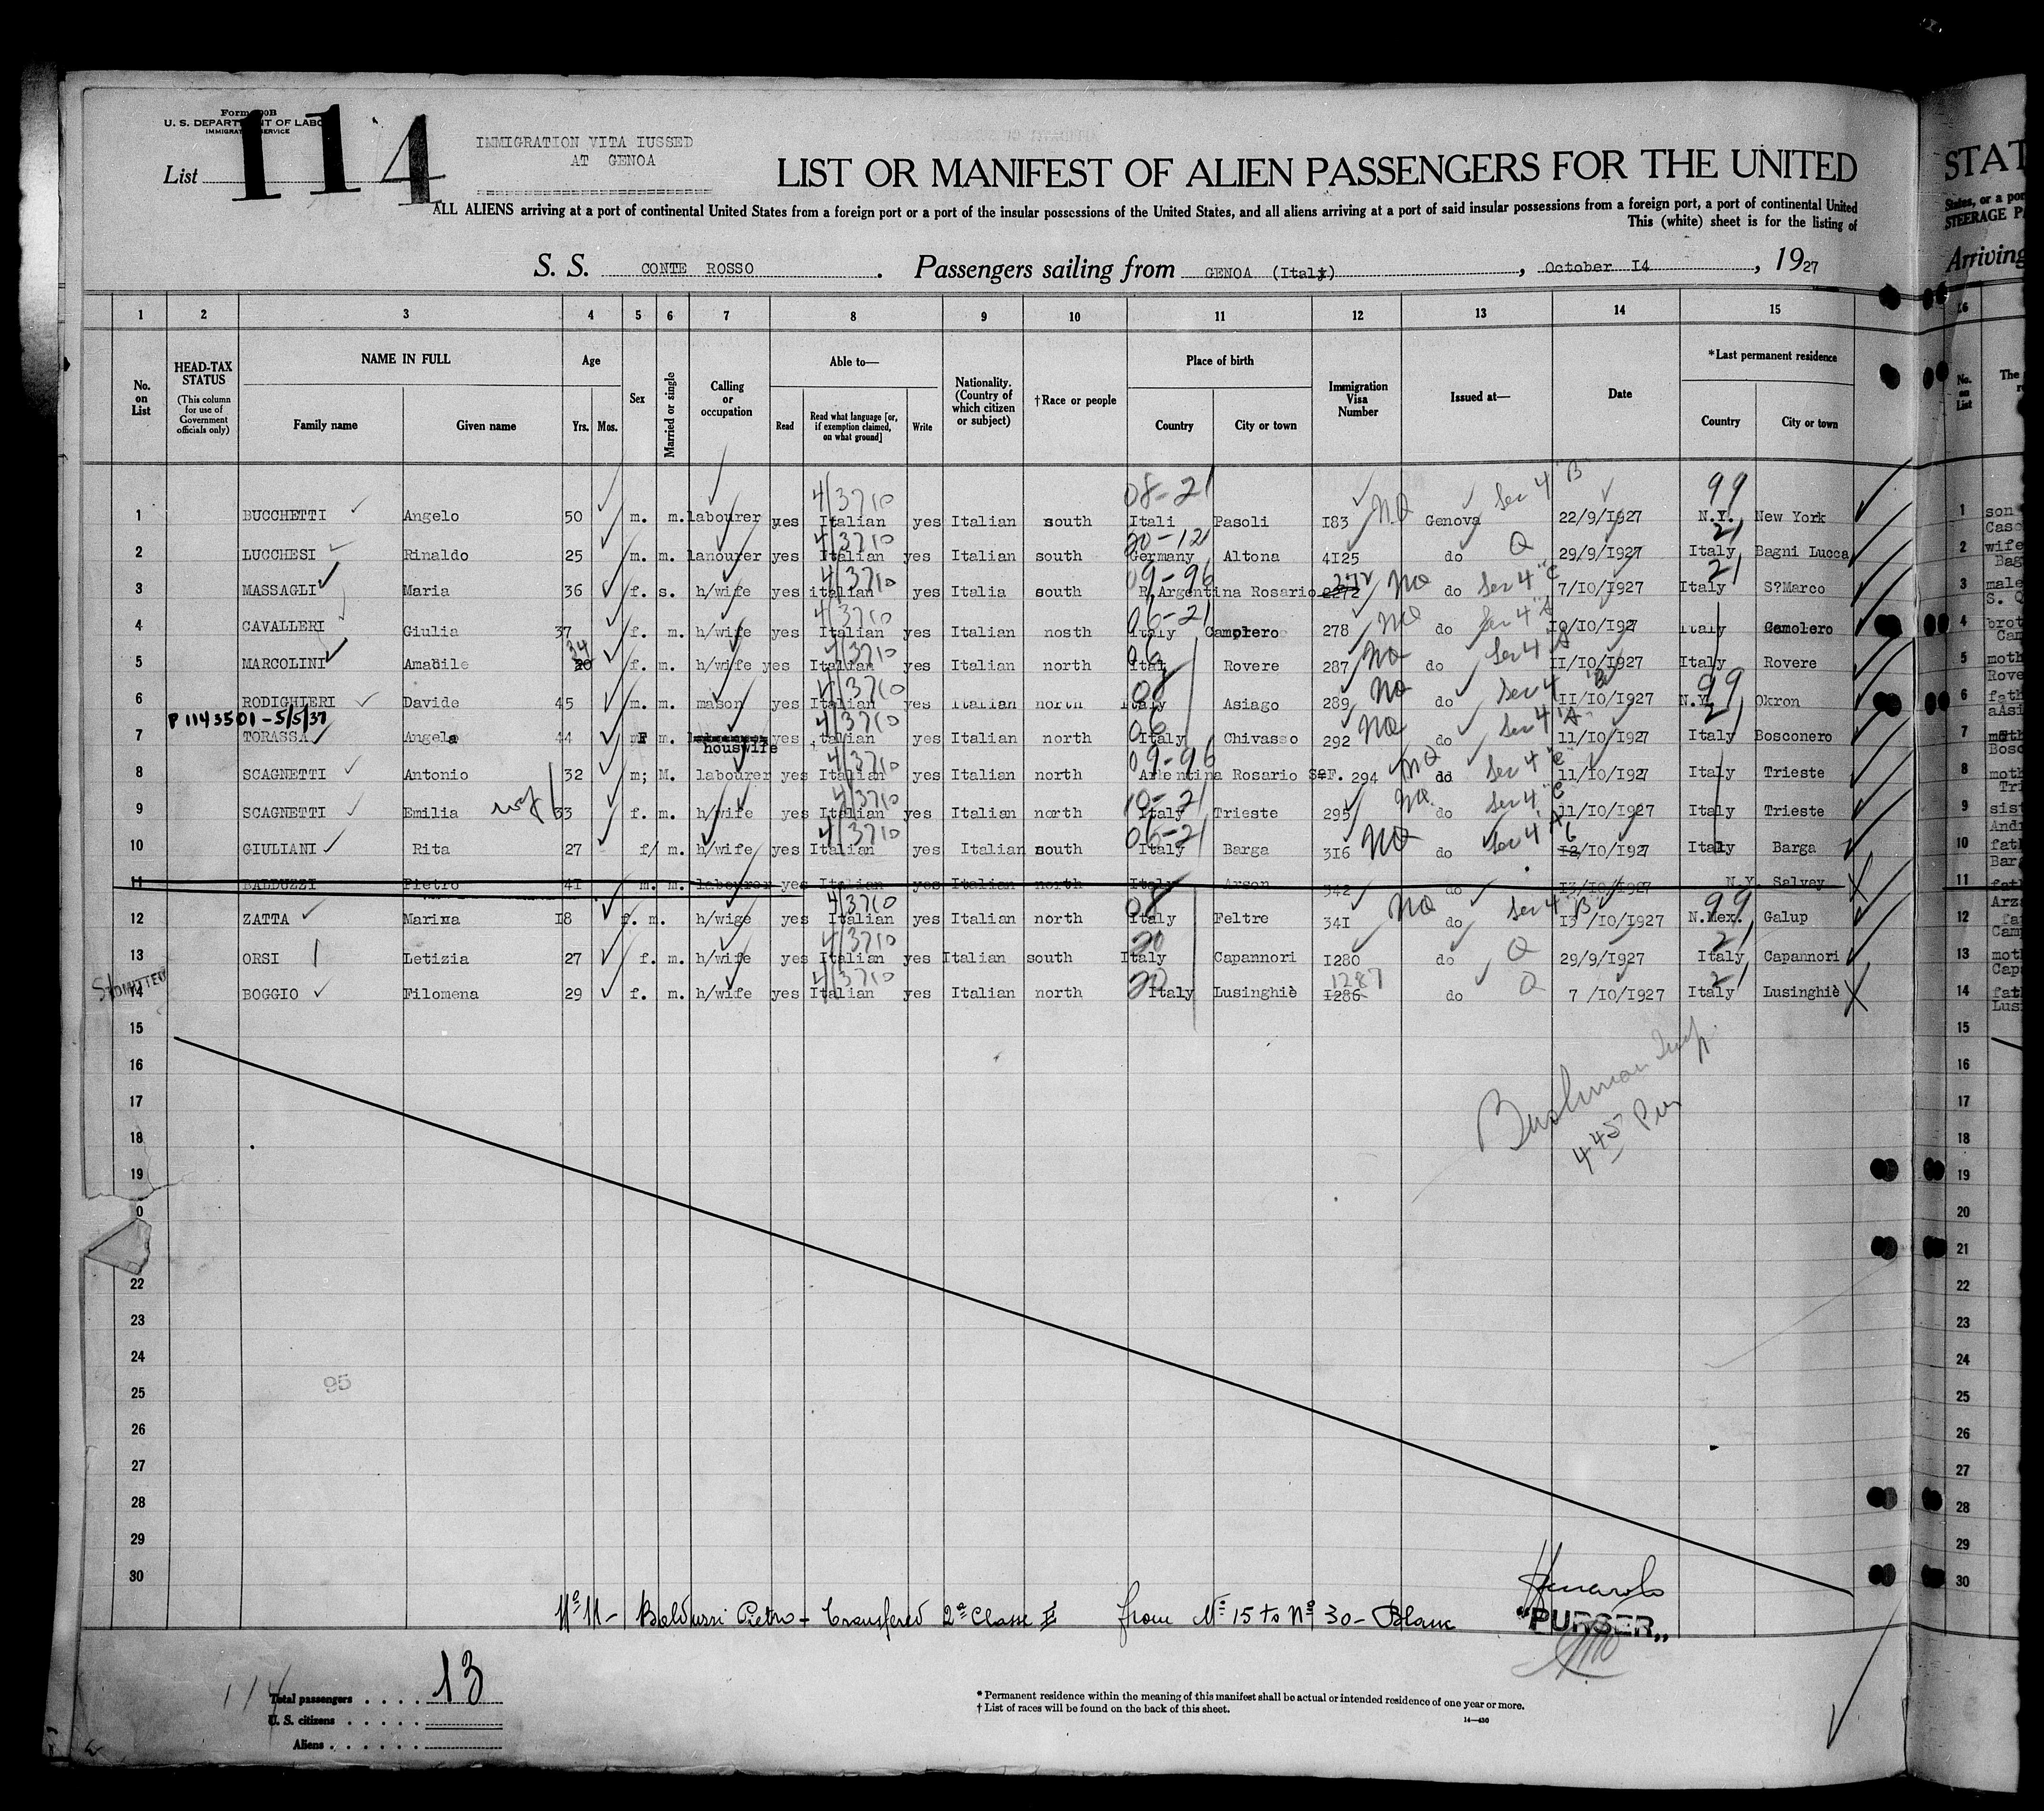 Form 500B
U. S. DEPARTMENT OF LABOR
IMMIGRATION SERVICE
List 114
IMMIGRATION VITA IUSSED
AT GENOA
LIST OR MANIFEST OF ALIEN PASSENGERS FOR THE UNITED
STAT
ALL ALIENS arriving at a port of continental United States from a foreign port or a port of the insular possessions of the United States, and all aliens arriving at a port of said insular possessions from a foreign port, a port of continental United
States, or a por
This (white) sheet is for the listing of
STEERAGE PA
S. S. CONTE ROSSO. Passengers sailing from GENOA (Italy), October I4, 1927
Arriving
1 2 3 4 5 6 7 8 9 10 11 12 13 14 15 16
No. on List
HEAD-TAX STATUS
(This column for use of Government officials only)
NAME IN FULL
Family name Given name
Age
Yrs. Mos.
Sex
Married or single
Calling or occupation
Able to—
Read
Read what language [or, if exemption claimed, on what ground]
Write
Nationality. (Country of which citizen or subject)
†Race or people
Place of birth
Country City or town
Immigration Visa Number
Issued at—
Date
*Last permanent residence
Country City or town
No. on List
The
4/3710 08-21 Sec 4 "B" 99
1 BUCCHETTI Angelo 50 m. m. labourer yes Italian yes Italian south Itali Pasoli I83 NQ Genova 22/9/I927 N.Y. New York 1 son
4/3710 20-12 Q 21
2 LUCCHESI Rinaldo 25 m. m. lanourer yes Italian yes Italian south Germany Altona 4I25 do 29/9/I927 Italy Bagni Lucca 2 wife
4/3710 09-96 2272 NQ Sec 4 "C" 21
3 MASSAGLI Maria 36 f. s. h/wife yes italian yes Italia south R.Argentina Rosario 2272 do 7/10/I927 Italy S?Marco 3 male
4/3710 06-21 NQ Sec 4 "A"
4 CAVALLERI Giulia 37 f. m. h/wife yes Italian yes Italian nosth Italy Camolero 278 do I0/I0/I927 Italy Camolero 4 brot
34 4/3710 06 NQ Sec 4 A
5 MARCOLINI Amabile 20 f. m. h/wife yes Italian yes Italian north Ital Rovere 287 do II/I0/I927 Italy Rovere 5 moth
4/3710 NQ Sec 4 "B" 99
6 RODIGHIERI Davide 45 m. m. mason yes Italian yes Italian north Italy Asiago 289 do II/I0/I927 N.Y. Okron 6 fath
P 1143501 - 5/5/37 4/3710 06 NQ Sec 4 "A" 21
7 TORASSA Angela 44 F m. houswife yes italian yes Italian north Italy Chivasso 292 do II/I0/I927 Italy Bosconero 7 moth
4/3710 09-96 NQ Sec 4 "C"
8 SCAGNETTI Antonio 32 m; M. labourer yes Italian yes Italian north Arlentina Rosario SeF. 294 do II/I0/I927 Italy Trieste 8 moth
wf 4/3710 10-21 NQ Sec 4 "C"
9 SCAGNETTI Emilia 33 f. m. h/wife yes Italian yes Italian north Italy Trieste 295 do II/I0/I927 Italy Trieste 9 sist
4/3710 06-21 NQ Sec 4 A 6
10 GIULIANI Rita 27 f/ m. h/wife yes Italian yes Italian south Italy Barga 3I6 do I2/I0/I927 Italy Barga 10 fath
11 BALDUZZI Pietro 4I m. m. labourer yes Italian yes Italian north Italy Arson 342 do I3/I0/I927 N.Y. Salvey 11 fath
4/3710 NQ Sec 4 "B" 99
12 ZATTA Marixa I8 f. m. h/wige yes Italian yes Italian north Italy Feltre 34I do I3 /I0/I927 N.Mex. Galup 12 fa
4/3710 20 Q 21
13 ORSI Letizia 27 f. m. h/wife yes Italian yes Italian south Italy Capannori I280 do 29/9/I927 Italy Capannori 13 moth
ADMITTED 4/3710 20 1287 Q 21
14 BOGGIO Filomena 29 f. m. h/wife yes Italian yes Italian north Italy Lusinghiè I286 do 7 /I0/I927 Italy Lusinghiè 14 fath
15 15
16 16
17 Bushman Insp. 17
18 445 18
19 19
0 20
21
22 22
23 23
24 24
25 95 25
26 26
27 27
28 28
29 29
30 30
Nº 11 - Balduzzi Pietro - Transfered 2ª Classe from Nº 15 to Nº 30 - Blanc
"PURSER„
114
Total passengers . . . . 13
U. S. citizens . . . . .
Aliens . . . . . .
* Permanent residence within the meaning of this manifest shall be actual or intended residence of one year or more.
† List of races will be found on the back of this sheet.
14—430